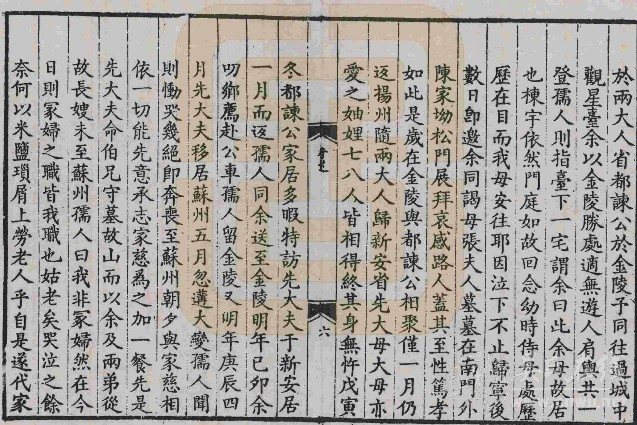 於兩大人省都諫公於金陵子同往過城中
觀星臺余以金陵勝處適無遊人肩輿共一
登孺人則指臺下一宅謂余曰此余母故居
也棟宇依然門庭如故回念幼時侍母處歷
歷在目而我母安往耶因泣下不止歸寧後
數日即邀余同謁母張夫人墓墓在南門外
陳家坳松門展拜哀感路人蓋其至性篤孝
如此是歲在金陵與都諫公相聚僅一月仍
返揚州隨兩大人歸新安省先大母大母亦
愛之妯娌七八人皆相得終其身無忤戊寅
六
冬都諫公家居多暇特訪先大夫于新安居
一月而返孺人同余送至金陵明年己卯余
叨鄉薦赴公車孺人留金陵又明年庚辰四
月先大夫移居蘇州五月忽遘大變孺人聞
則慟哭幾絕即奔喪至蘇州朝夕與家慈相
依一切能先意承志家慈為之加一餐先是
先大夫命伯兄守墓故山而以余及兩弟從
故長嫂未至蘇州孺人曰我非冢婦然在今
日則冢婦之職皆我職也姑老矣哭泣之餘
奈何以米鹽瑣屑上勞老人乎自是遂代家